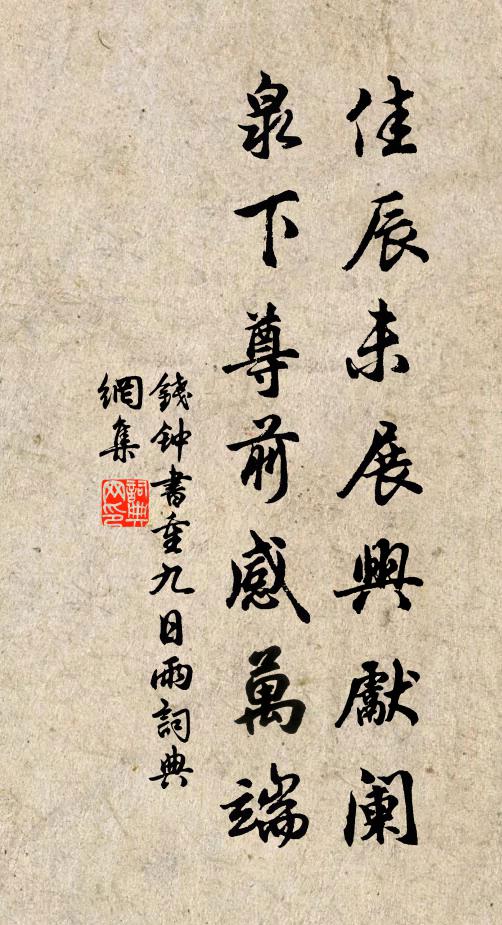 佳辰未展興獻闌
泉下尊前感萬端
錢钟書重九日雨詞典
網集
詞典
网印